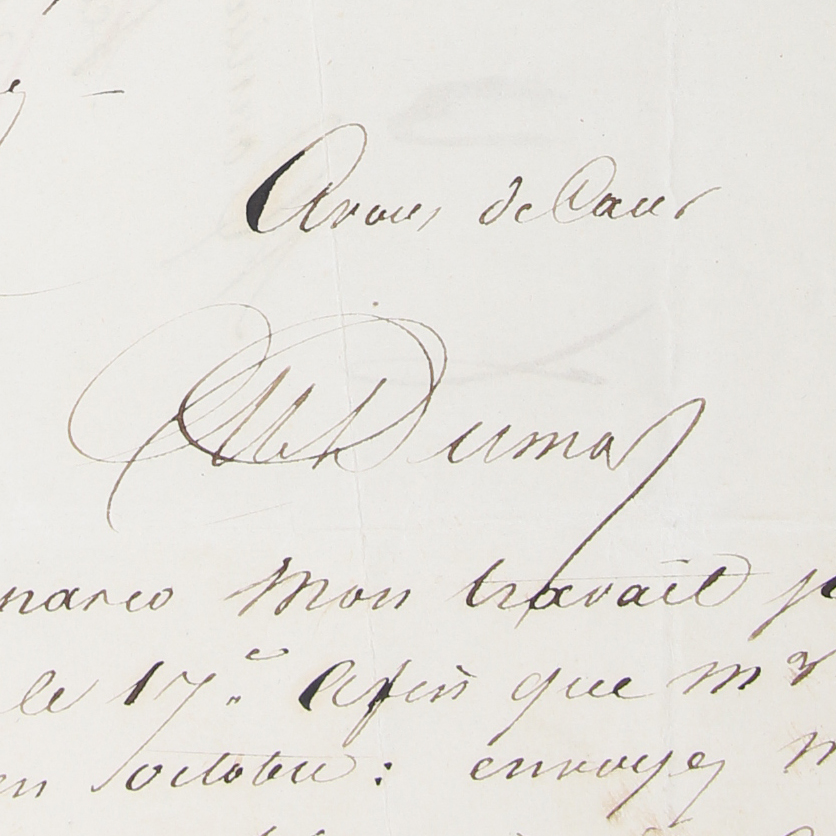 A vous de Cœur
Alex Dumas
mon travail
le 17. afin que mr
en octobre : envoyez